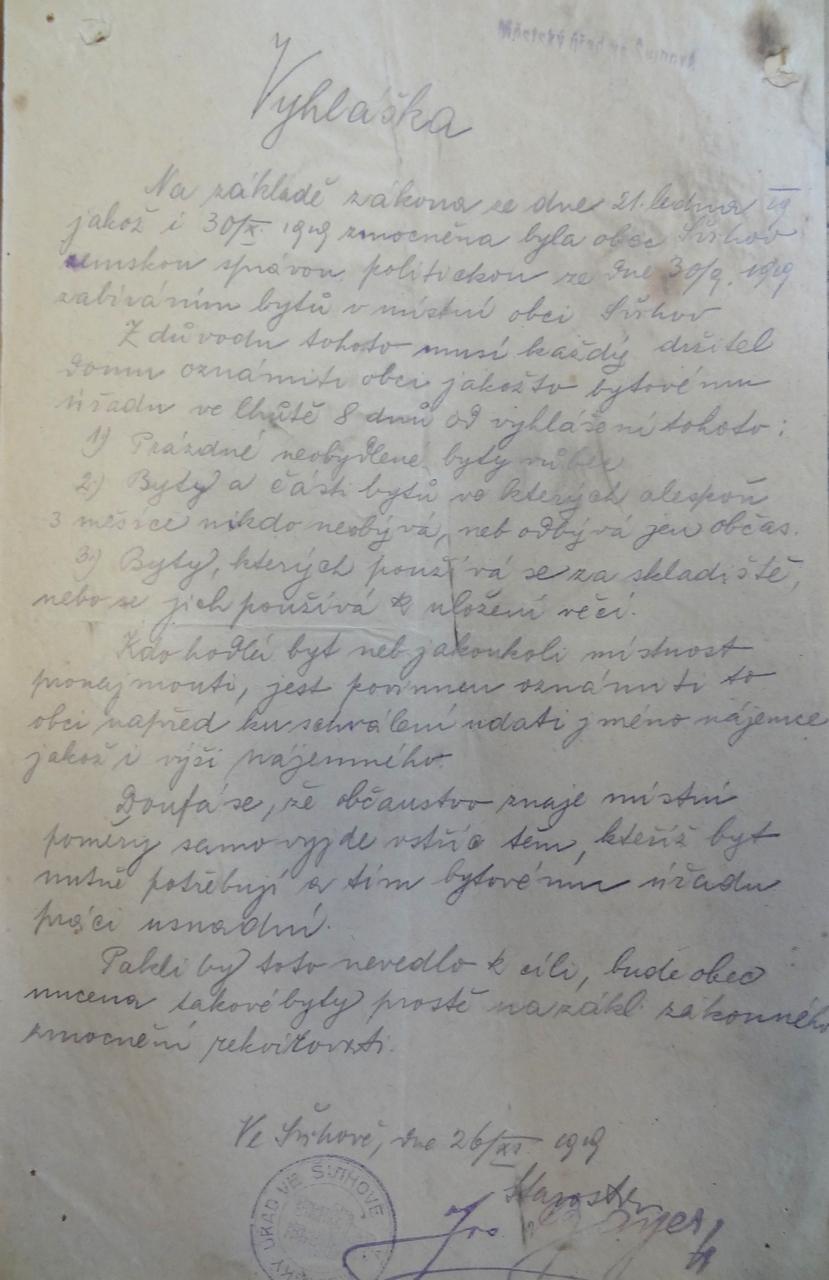 Městský úřad ve Švihově
Vyhláška
Na základě zákona ze dne 21. ledna 19
jakož i 30/X. 1919 zmocněna byla obec Švihov
zemskou správou politickou ze dne 30/9. 1919
zabíráním bytů v místní obci Švihov
Z důvodu tohoto musí každý držitel
domu oznámiti obci jakožto bytovému
úřadu ve lhůtě 8 dnů od vyhlášení tohoto:
1) Prázdné neobydlené byty vůbec
2) Byty a části bytů ve kterých alespoň
3 měsíce nikdo neobývá, neb odbývá jen občas.
3) Byty, kterých používá se za skladiště,
nebo se jich používá k uložení věcí.
Kdo hodlá byt neb jakoukoli místnost
pronajmouti, jest povinnen oznámiti to
obci napřed ku schválení udati jméno nájemce
jakož i výši nájemného.
Doufá se, že občanstvo znaje místní
poměry samo vyjde vstříc těm, kteříž byt
nutně potřebují a tím bytovému úřadu
práci usnadní.
Pakli by toto nevedlo k cíli, bude obec
nucena takové byty prostě na zákl. zákonného
zmocnění rekvírovati.
Ve Švihově, dne 26/XI 1919
Starosta
Jos.
ÚŘAD VE ŠVIHOVĚ